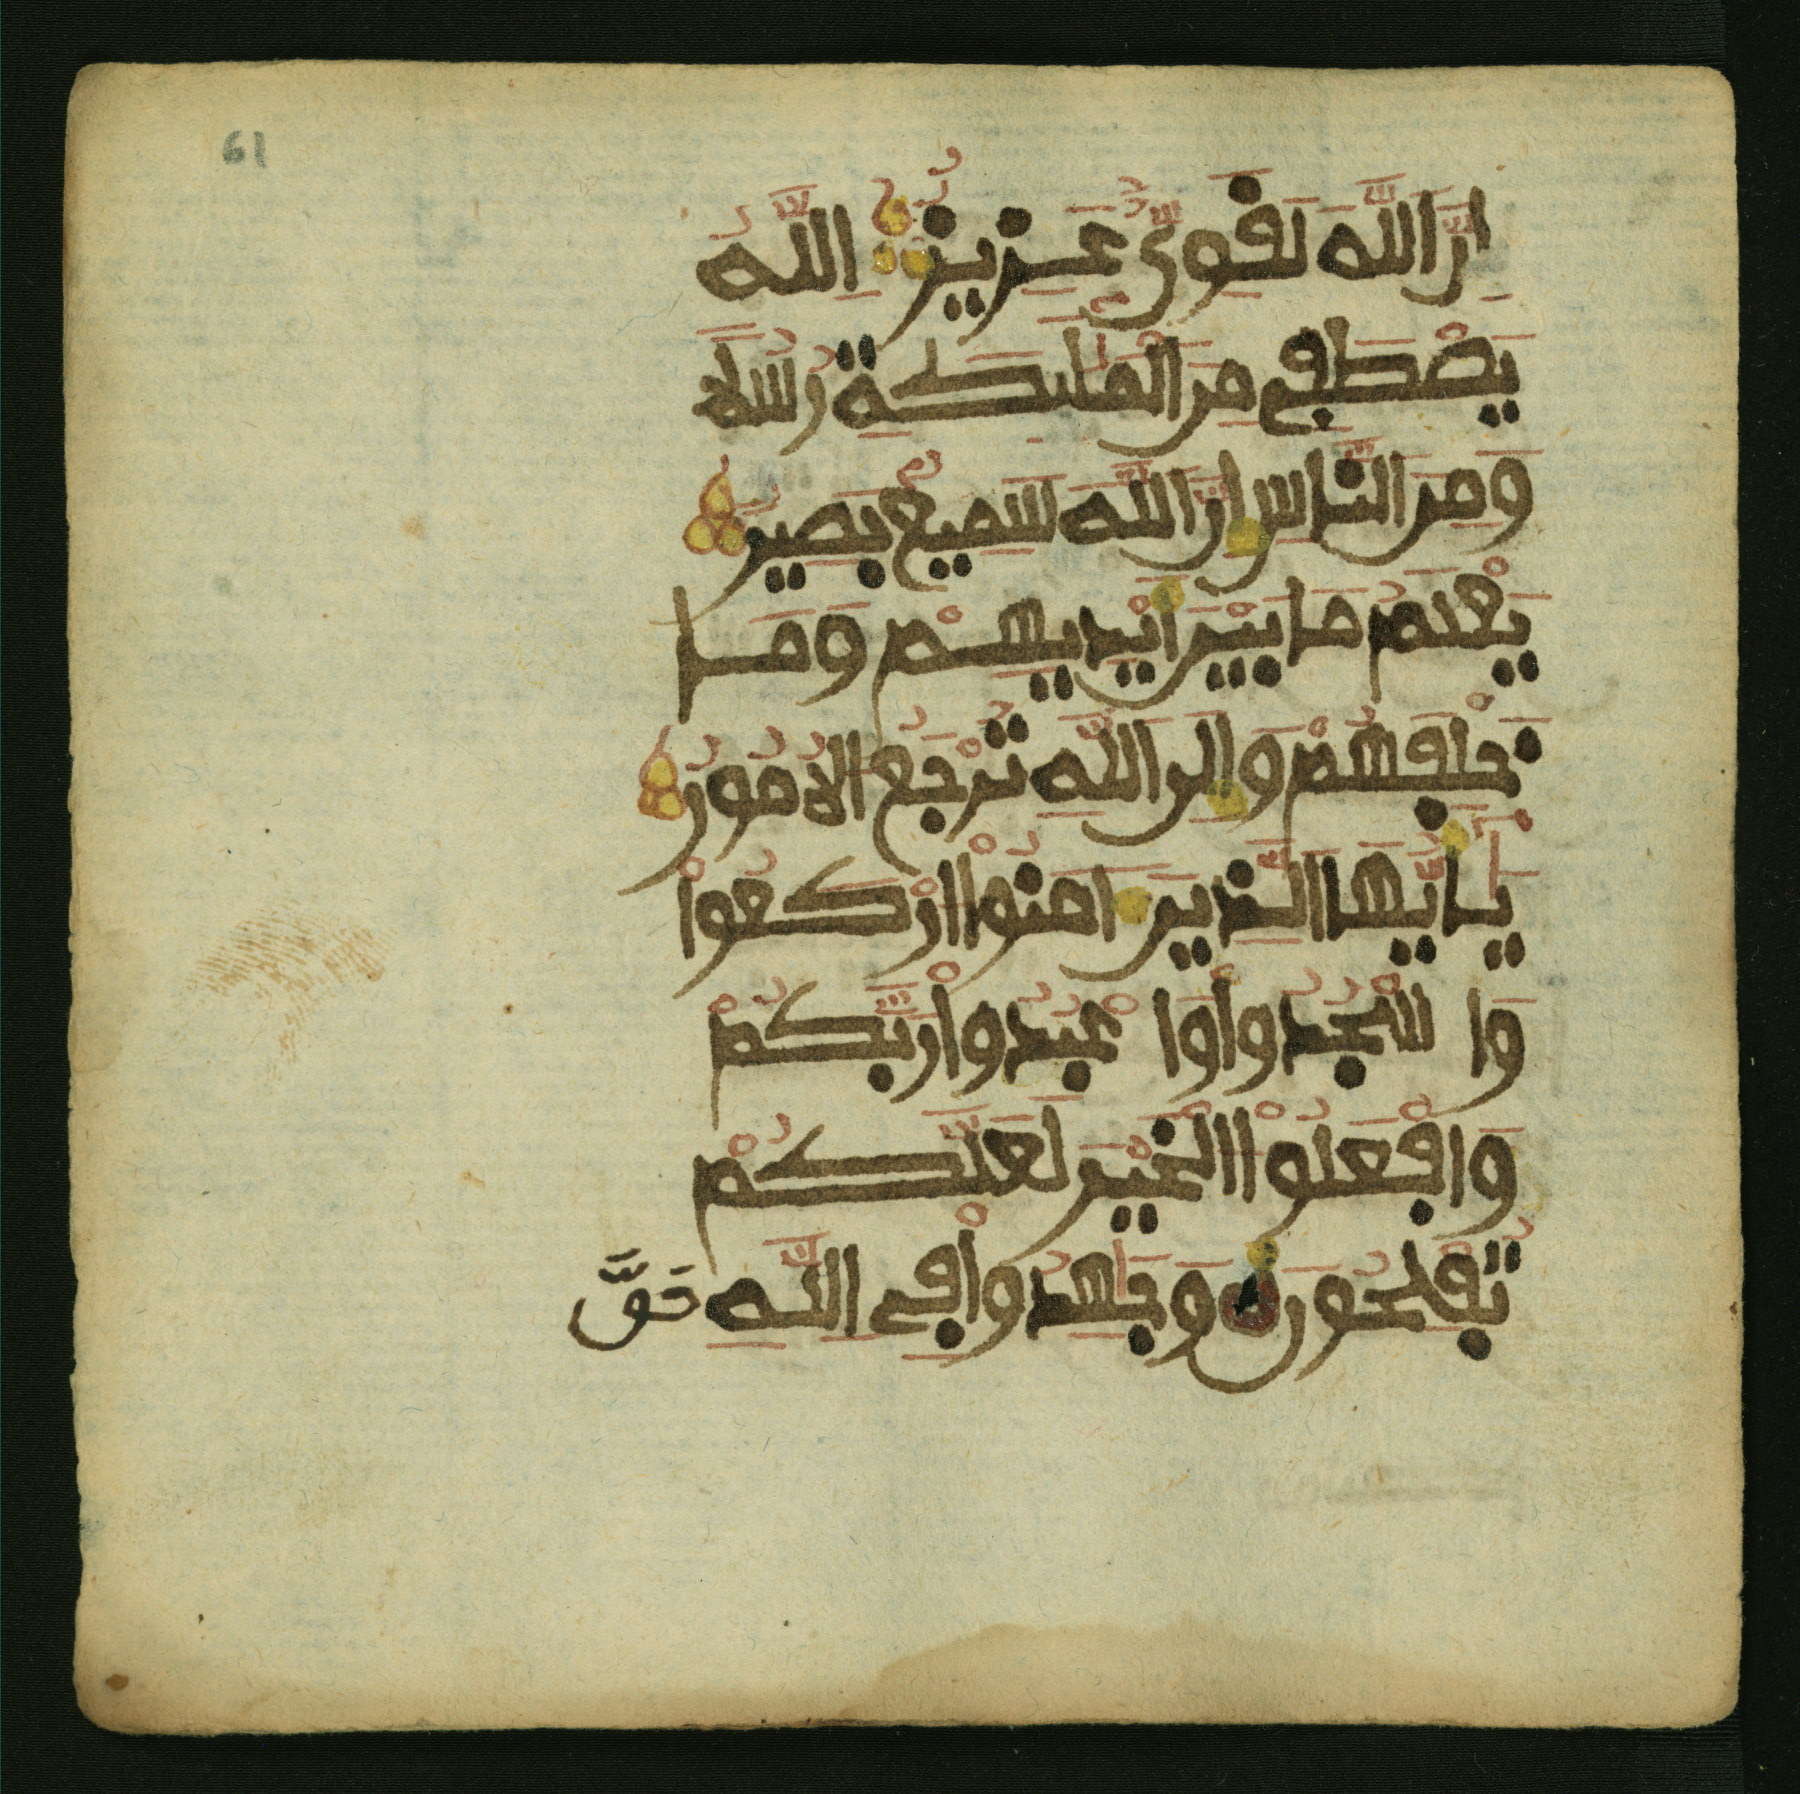 61
اِنَّ اَللَّهَ لَقَوِىٌّ عَزِيزٌ اِللَّهُ
يَصْطَفِے مِنَ اَلْمَلَٰٓئِكَةِ رُسُلاً
وَمِنَ اَلنَّاسِ إِنَّ اَللَّهَ سَمِيعٌ بَصِيرٌ
يَعْلَمُ مَا بَيْنَ أَيْدِيهِمْ وَمَا
خَلْفَهُمْ وَإِلَى اَللَّهِ تُرْجَعُ اُلْأُمُورُ
يَٰٓأَيُّهَا اَلَّذِينَ ءَامَنُوا اُرْكَعُواْ
وَا سْجُدُواْ وَا عْبُدُواْ رَبَّكُمْ
وَافْعَلُواْ اُلْخَيْرَ لَعَلَّكُمْ
تُفْلِحُونَ وَجَٰهِدُواْ فِے اِللَّهِ حَقَّ